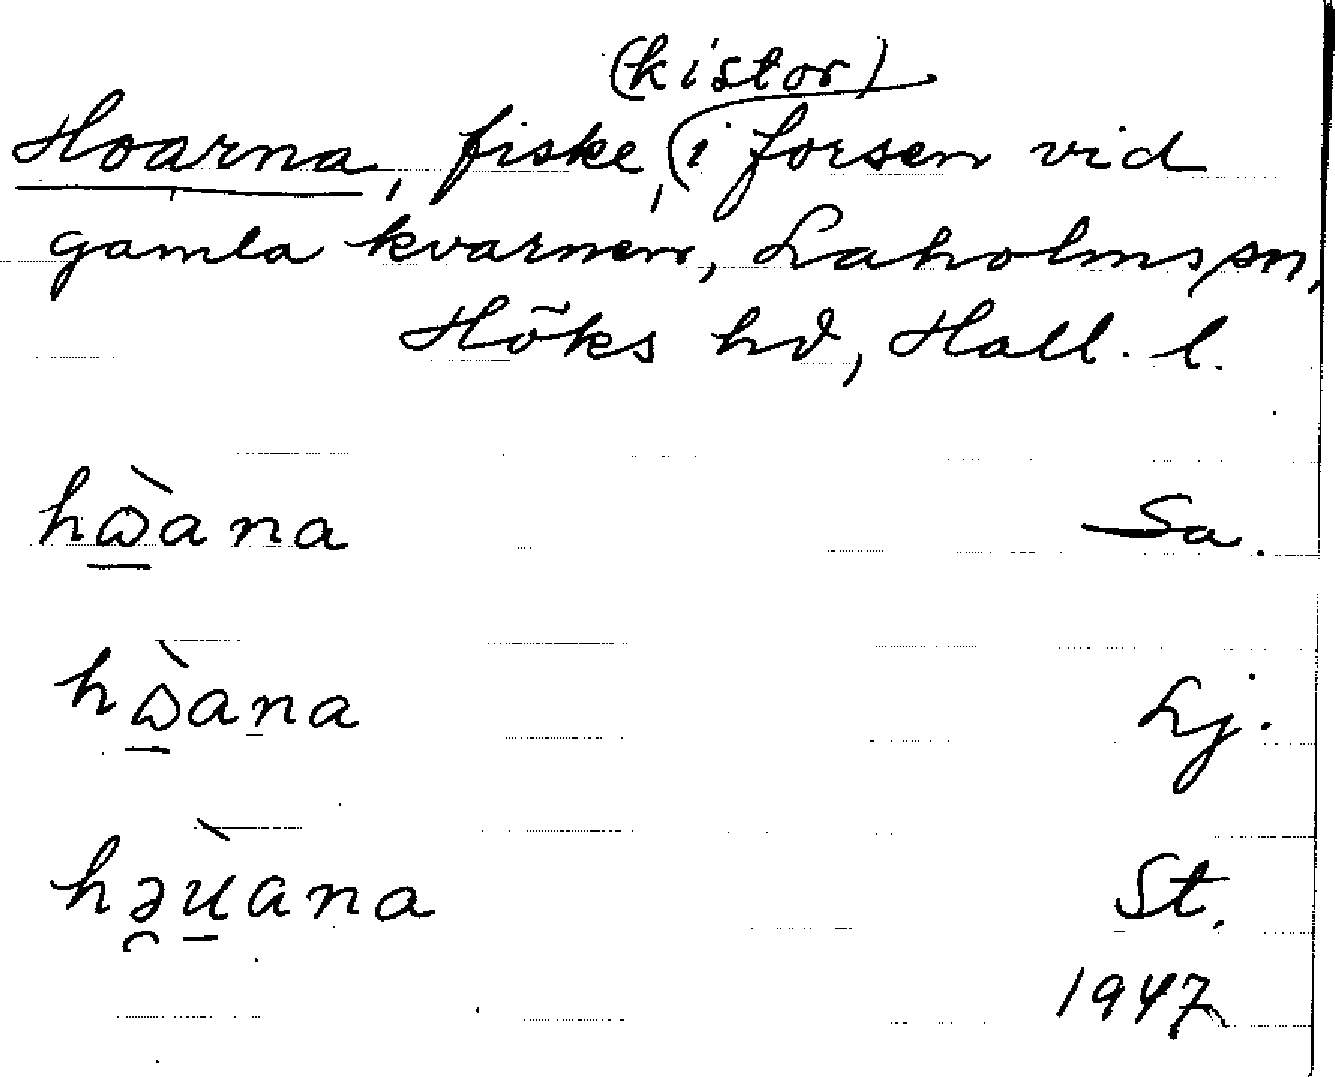 (kistor)
Hoarna, fiske, i forsen vid
gamla kvarnen, Laholms sn,
Höks hd, Hall. l.
Sa.
Lj.
həù̠ana St.
1947